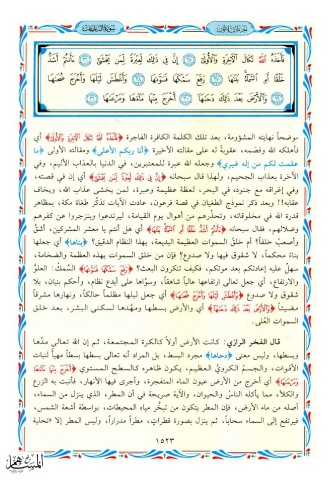 سورة النازعات
الجزء الثلاثون
فَأَخَذَهُ اللَّهُ نَكَالَ الْآخِرَةِ وَالْأُولَىٰ ﴿٢٥﴾ إِنَّ فِي ذَٰلِكَ لَعِبْرَةً لِمَنْ يَخْشَىٰ ﴿٢٦﴾ ءَأَنْتُمْ أَشَدُّ
خَلْقًا أَمِ السَّمَاءُ بَنَاهَا ﴿٢٧﴾ رَفَعَ سَمْكَهَا فَسَوَّاهَا ﴿٢٨﴾ وَأَغْطَشَ لَيْلَهَا وَأَخْرَجَ ضُحَاهَا
﴿٢٩﴾ وَالْأَرْضَ بَعْدَ ذَٰلِكَ دَحَاهَا ﴿٣٠﴾ أَخْرَجَ مِنْهَا مَاءَهَا وَمَرْعَاهَا ﴿٣١﴾
موضحاً نهايته المشؤومة، بعد تلك الكلمة الكافرة الفاجرة ﴿فَأَخَذَهُ اللَّهُ نَكَالَ الْآخِرَةِ وَالْأُولَىٰ﴾ أي
فأهلكه الله وقصمه، عقوبةً له على مقالته الأخيرة ﴿أنا ربكم الأعلى﴾ ومقالته الأولى ﴿ما
علمت لكم من إله غيري﴾ وجعله الله عبرة للمعتبرين، في الدنيا بالعذاب الأليم، وفي
الآخرة بعذاب الجحيم، ولهذا قال سبحانه ﴿إِنَّ فِي ذَٰلِكَ لَعِبْرَةً لِمَنْ يَخْشَىٰ﴾ أي إن في قصته،
وفي إغراقه مع جنوده في البحر، لعظة عظيمة وعبرة، لمن يخشى عذاب الله، ويخاف
عقابه!! وبعد ذكر نموذج الطغيان في قصة فرعون، عادت الآيات تذكّر طغاة مكة، بمظاهر
قدرة الله في مخلوقاته، وتحذّرهم من أهوال يوم القيامة، ليرتدعوا وينزجروا عن كفرهم
وضلالهم، فقال سبحانه ﴿ءَأَنْتُمْ أَشَدُّ خَلْقًا أَمِ السَّمَاءُ بَنَاهَا﴾ أي هل أنتم يا معشر المشركين، أشقّ
وأصعب خلقاً؟ أم خلق السموات العظيمة البديعة، بهذا النظام الدقيق؟ ﴿بناها﴾ أي جعلها
بناءً محكماً، لا شقوق فيها ولا صدوع؟ فإن من خلق السموات بهذه العظمة والضخامة،
سهلٌ عليه إعادتكم بعد موتكم، فكيف تنكرون البعث؟ ﴿رَفَعَ سَمْكَهَا فَسَوَّاهَا﴾ السَّمكُ: العلوُّ
والارتفاع، أي جعل تعالى ارتفاعها عالياً شاهقاً، وسوّاها على أبدع نظام، وأحكم بنيان، بلا
شقوق ولا صدوع ﴿وَأَغْطَشَ لَيْلَهَا وَأَخْرَجَ ضُحَاهَا﴾ أي جعل ليلها مظلماً حالكاً، ونهارها مشرقاً
مضيئاً ﴿وَالْأَرْضَ بَعْدَ ذَٰلِكَ دَحَاهَا﴾ أي والأرض بسطها ومهّدها لسكنى البشر، بعد خلق
السموات العُلى.
قال الفخر الرازي: كانت الأرض أولاً كالكرة المجتمعة، ثم إن الله تعالى مدّها
وبسطها، وليس معنى ﴿دحاها﴾ مجرد البسط، بل المراد أنه تعالى بسطها بسطاً مهيأ لنبات
الأقوات، والجسم الكرويُّ العظيم، يكون ظاهره كالسطح المستوي ﴿أَخْرَجَ مِنْهَا مَاءَهَا
وَمَرْعَاهَا﴾ أي أخرج من الأرض عيون الماء المتفجرة، وأجرى فيها الأنهار، فأنبت به الزرع
والكلأ، مما يأكله الناسُ والحيوان، والآية صريحة في أن المطر، الذي ينزل من السماء،
أصله من ماء الأرض، فإن المطر يتكون من تبخّر مياه المحيطات، بواسطة أشعة الشمس،
فيرتفع إلى السماء سحاباً، ثم ينزل بصورة قطرات، مطراً مدراراً، وليس المطر إلا «تحلية
١٥٢٣